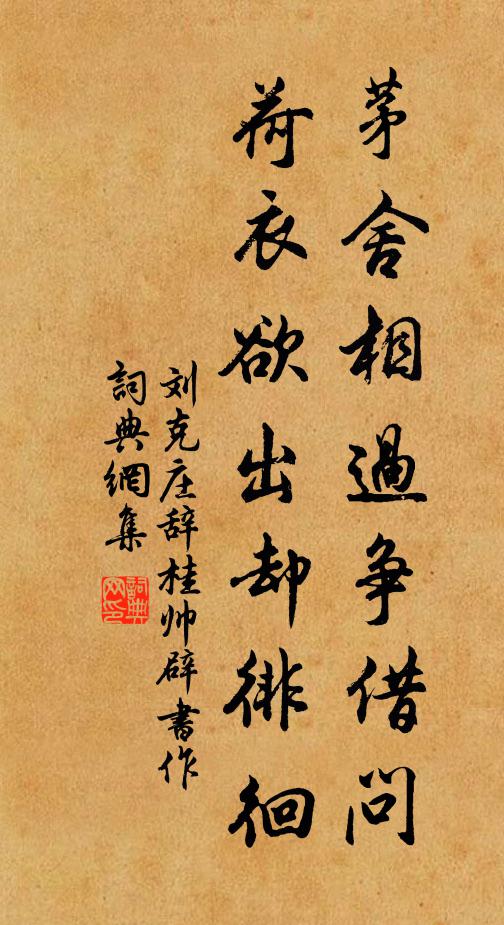 茅舍相過争借問
荷衣欲出却徘徊
刘克庄辞桂帅辟書作
詞典網集
詞典網印